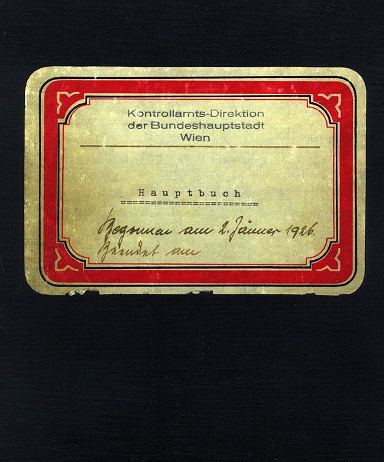 Kontrollamts-Direktion
der Bundeshauptstadt
Wien
Hauptbuch
Begonnen am 2. Jänner 1926.
Beendet am